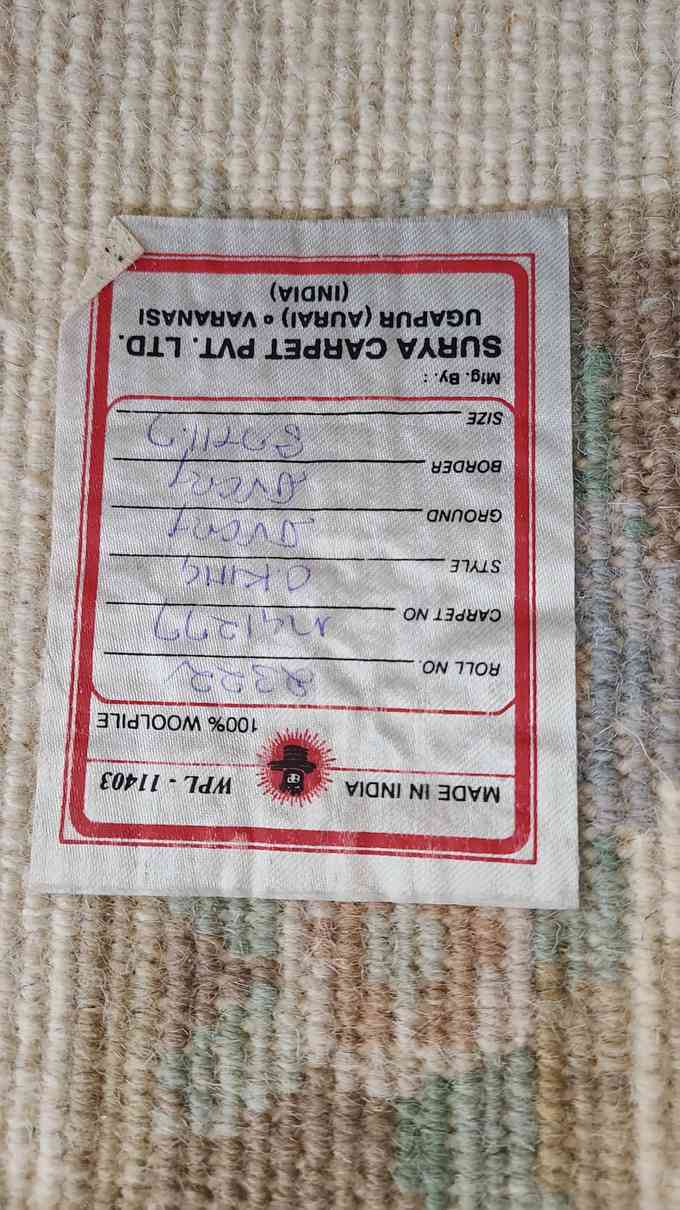 MADE IN INDIA WPL - 11403
100% WOOLPILE
ROLL NO. 2322
CARPET NO
STYLE
GROUND
BORDER
SIZE
Mfg. By. :
SURYA CARPET PVT. LTD.
UGAPUR (AURAI) • VARANASI
(INDIA)